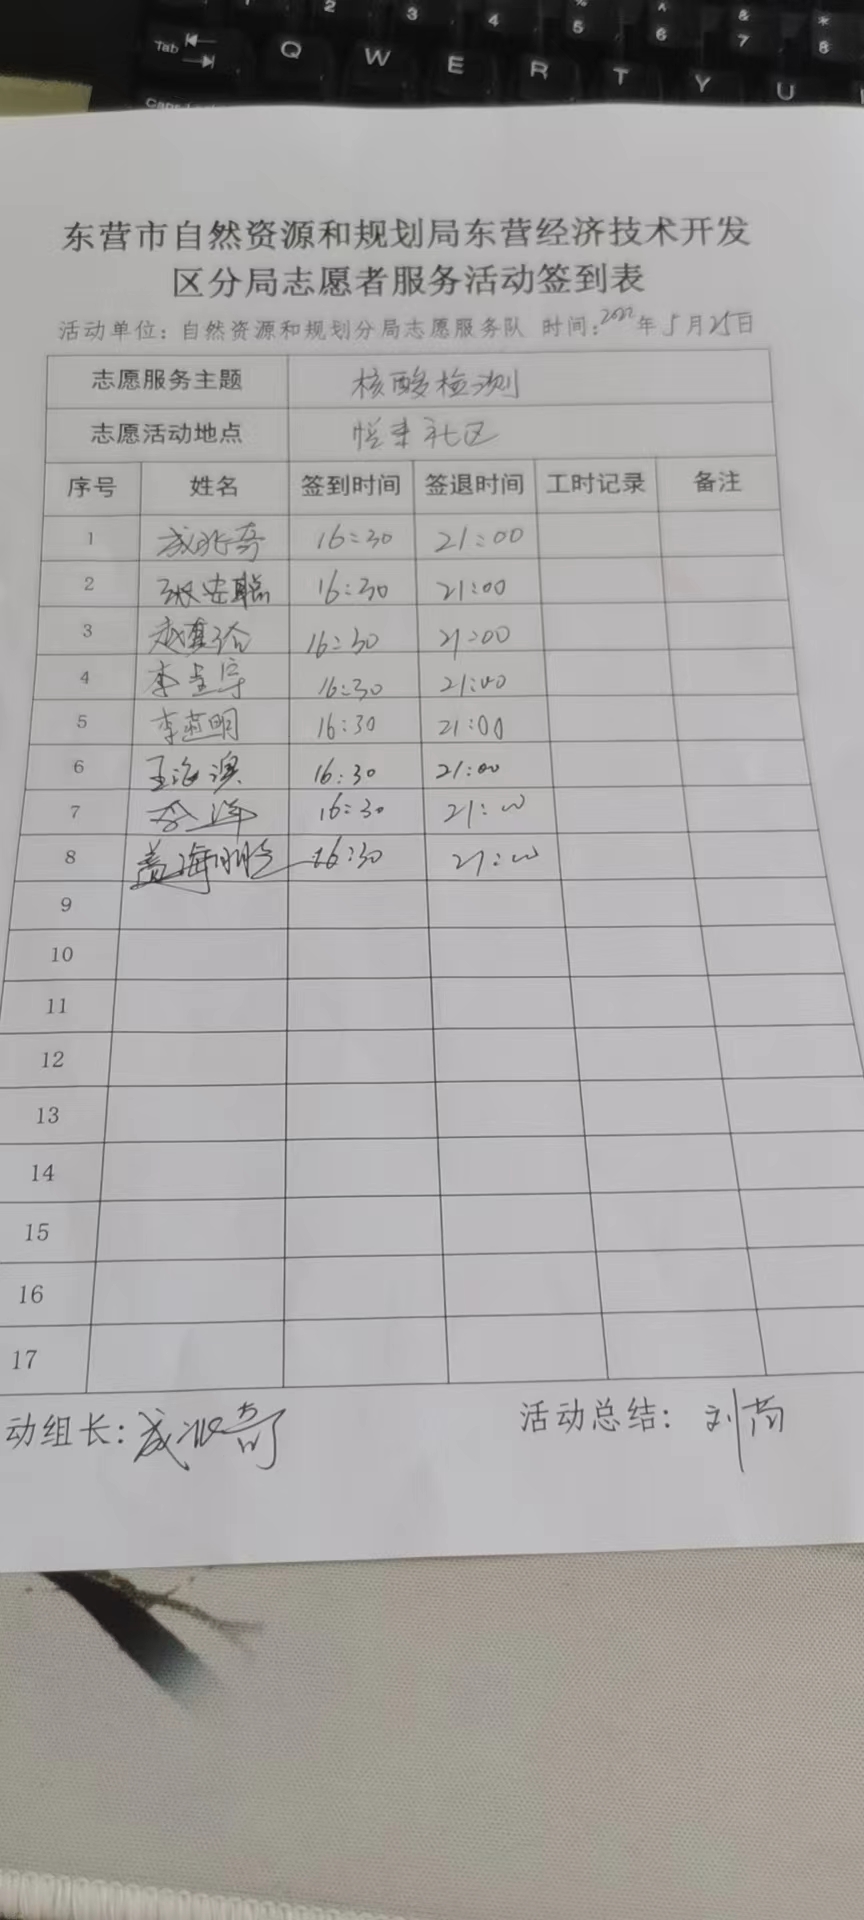 Tab Q W E R T Y U
2 3 4 % 5 ^ 6 & 7 * 8
东营市自然资源和规划局东营经济技术开发
区分局志愿者服务活动签到表
活动单位：自然资源和规划分局志愿服务队 时间：2022年5月25日
志愿服务主题 核酸检测
志愿活动地点 悦来社区
序号 姓名 签到时间 签退时间 工时记录 备注
1 成兆奇 16:30 21:00
2 张安聪 16:30 21:00
3 16:30 21:00
4 李 宇 16:30 21:00
5 李燕明 16:30 21:00
6 王海澳 16:30 21:00
7 16:30 21:00
8 盖海 16:30 21:00
9
10
11
12
13
14
15
16
17
动组长：成兆奇 活动总结：刘